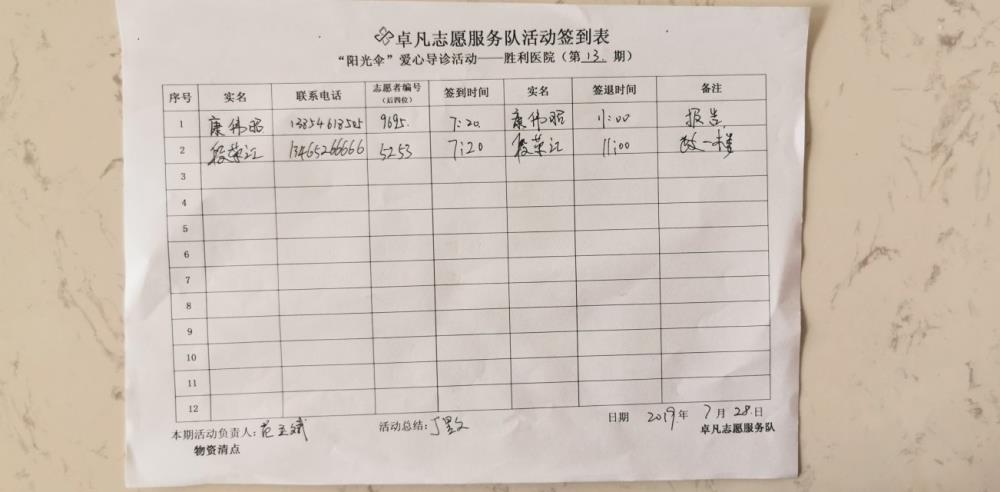 卓凡志愿服务队活动签到表
“阳光伞”爱心导诊活动——胜利医院（第 13. 期）
序号 实名 联系电话 志愿者编号（后四位） 签到时间 实名 签退时间 备注
1 康伟昭 13854618505 9695. 7:20. 康伟昭 11:00 报告
2 段荣江 13465266666 5253 7:20 段荣江 11:00 一楼
3
4
5
6
7
8
9
10
11
12
日期 2019年 7月 28.日
本期活动负责人: 范 斌 活动总结: 丁
卓凡志愿服务队
物资清点